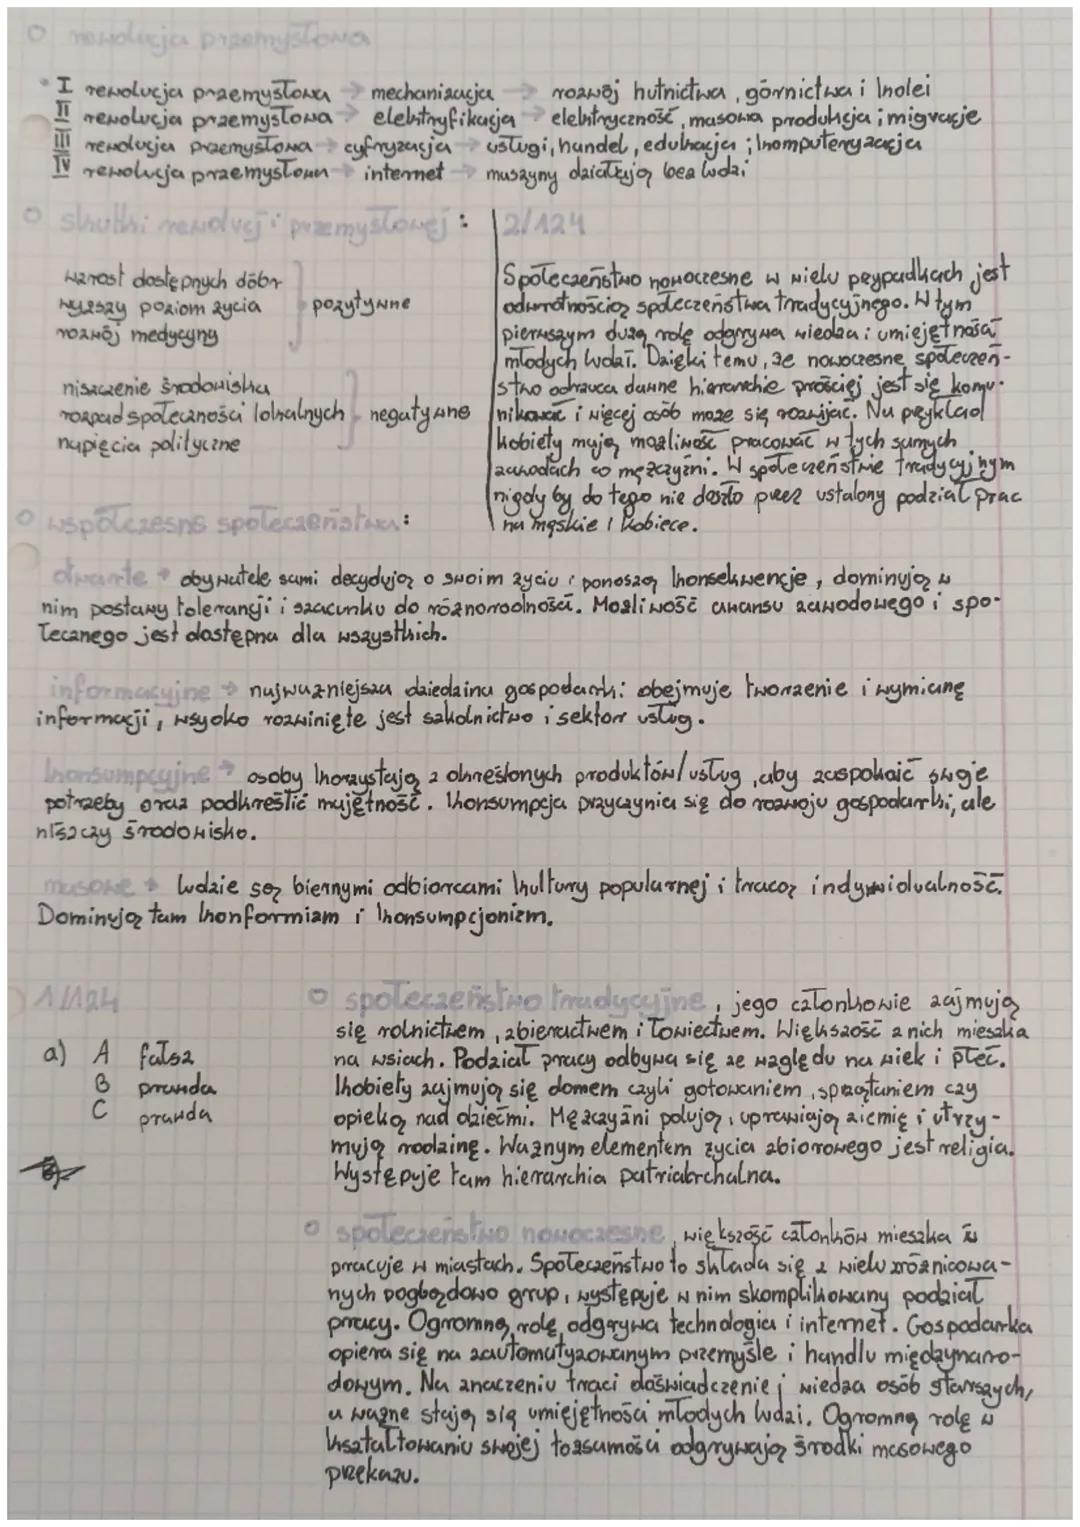 rewolucja przemysłowa
I rewolucja przemysłowa → mechanizacja → rozwój hutnictwa, górnictwa i kolei
II rewolucja przemysłowa → elektryfikacja → elektryczność, masowa produkcja i migracje
III rewolucja przemysłowa → cyfryzacja → usługi, handel, edukacja i komputeryzacja
IV rewolucja przemysłowa → internet → maszyny działają bez ludzi
skutki rewolucji przemysłowej:
wzrost dostępnych dóbr
wyższy poziom życia
rozwój medycyny
pozytywne
niszczenie środowiska
rozpad społeczności lokalnych
napięcia polityczne
negatywne
2/124
Społeczeństwo nowoczesne w wielu przypadkach jest
odwrotnością społeczeństwa tradycyjnego. W tym
pierwszym dużą rolę odgrywa wiedza i umiejętności
młodych ludzi. Dzięki temu, że nowoczesne społeczeń-
stwo odrzuca dawne hierarchie prościej jest się komu-
nikować i więcej osób może się rozwijać. Na przykład
kobiety mają możliwość pracować w tych samych
zawodach co mężczyźni. W społeczeństwie tradycyjnym
nigdy by do tego nie doszło przez ustalony podział prac
na męskie i kobiece.
współczesne społeczeństwa:
otwarte → obywatele sami decydują o swoim życiu i ponoszą konsekwencje, dominują w
nim postawy tolerancji i szacunku do różnorodności. Możliwość awansu zawodowego i spo-
łecznego jest dostępna dla wszystkich.
informacyjne → najważniejsza dziedzina gospodarki obejmuje tworzenie i wymianę
informacji, wsyoko rozwinięte jest szkolnictwo i sektor usług.
konsumpcyjne → osoby korzystają z określonych produktów/usług, aby zaspokoić swoje
potrzeby oraz podkreślić majętność. Konsumpcja przyczynia się do rozwoju gospodarki, ale
niszczy środowisko.
masowe → ludzie są biernymi odbiorcami kultury popularnej i tracą indywidualność.
Dominują tam konformizm i konsumpcjonizm.
1/124
a) A fałsz
B prawda
C prawda
społeczeństwo tradycyjne, jego członkowie zajmują
się rolnictwem, zbieractwem i łowiectwem. Większość z nich mieszka
na wsiach. Podział pracy odbywa się ze względu na wiek i płeć.
Kobiety zajmują się domem czyli gotowaniem, sprzątaniem czy
opieką nad dziećmi. Mężczyźni polują, uprawiają ziemię i utrzy-
mują rodzinę. Ważnym elementem życia zbiorowego jest religia.
Występuje tam hierarchia patriarchalna.
społeczeństwo nowoczesne, większość członków mieszka i
pracuje w miastach. Społeczeństwo to składa się z wielu zróżnicowa-
nych poglądowo grup, występuje w nim skomplikowany podział
pracy. Ogromną rolę odgrywa technologia i internet. Gospodarka
opiera się na zautomatyzowanym przemyśle i handlu międzynaro-
dowym. Na znaczeniu traci doświadczenie i wiedza osób starszych,
a ważne stają się umiejętności młodych ludzi. Ogromną rolę w
kształtowaniu swojej tożsamości odgrywają środki masowego
przekazu.